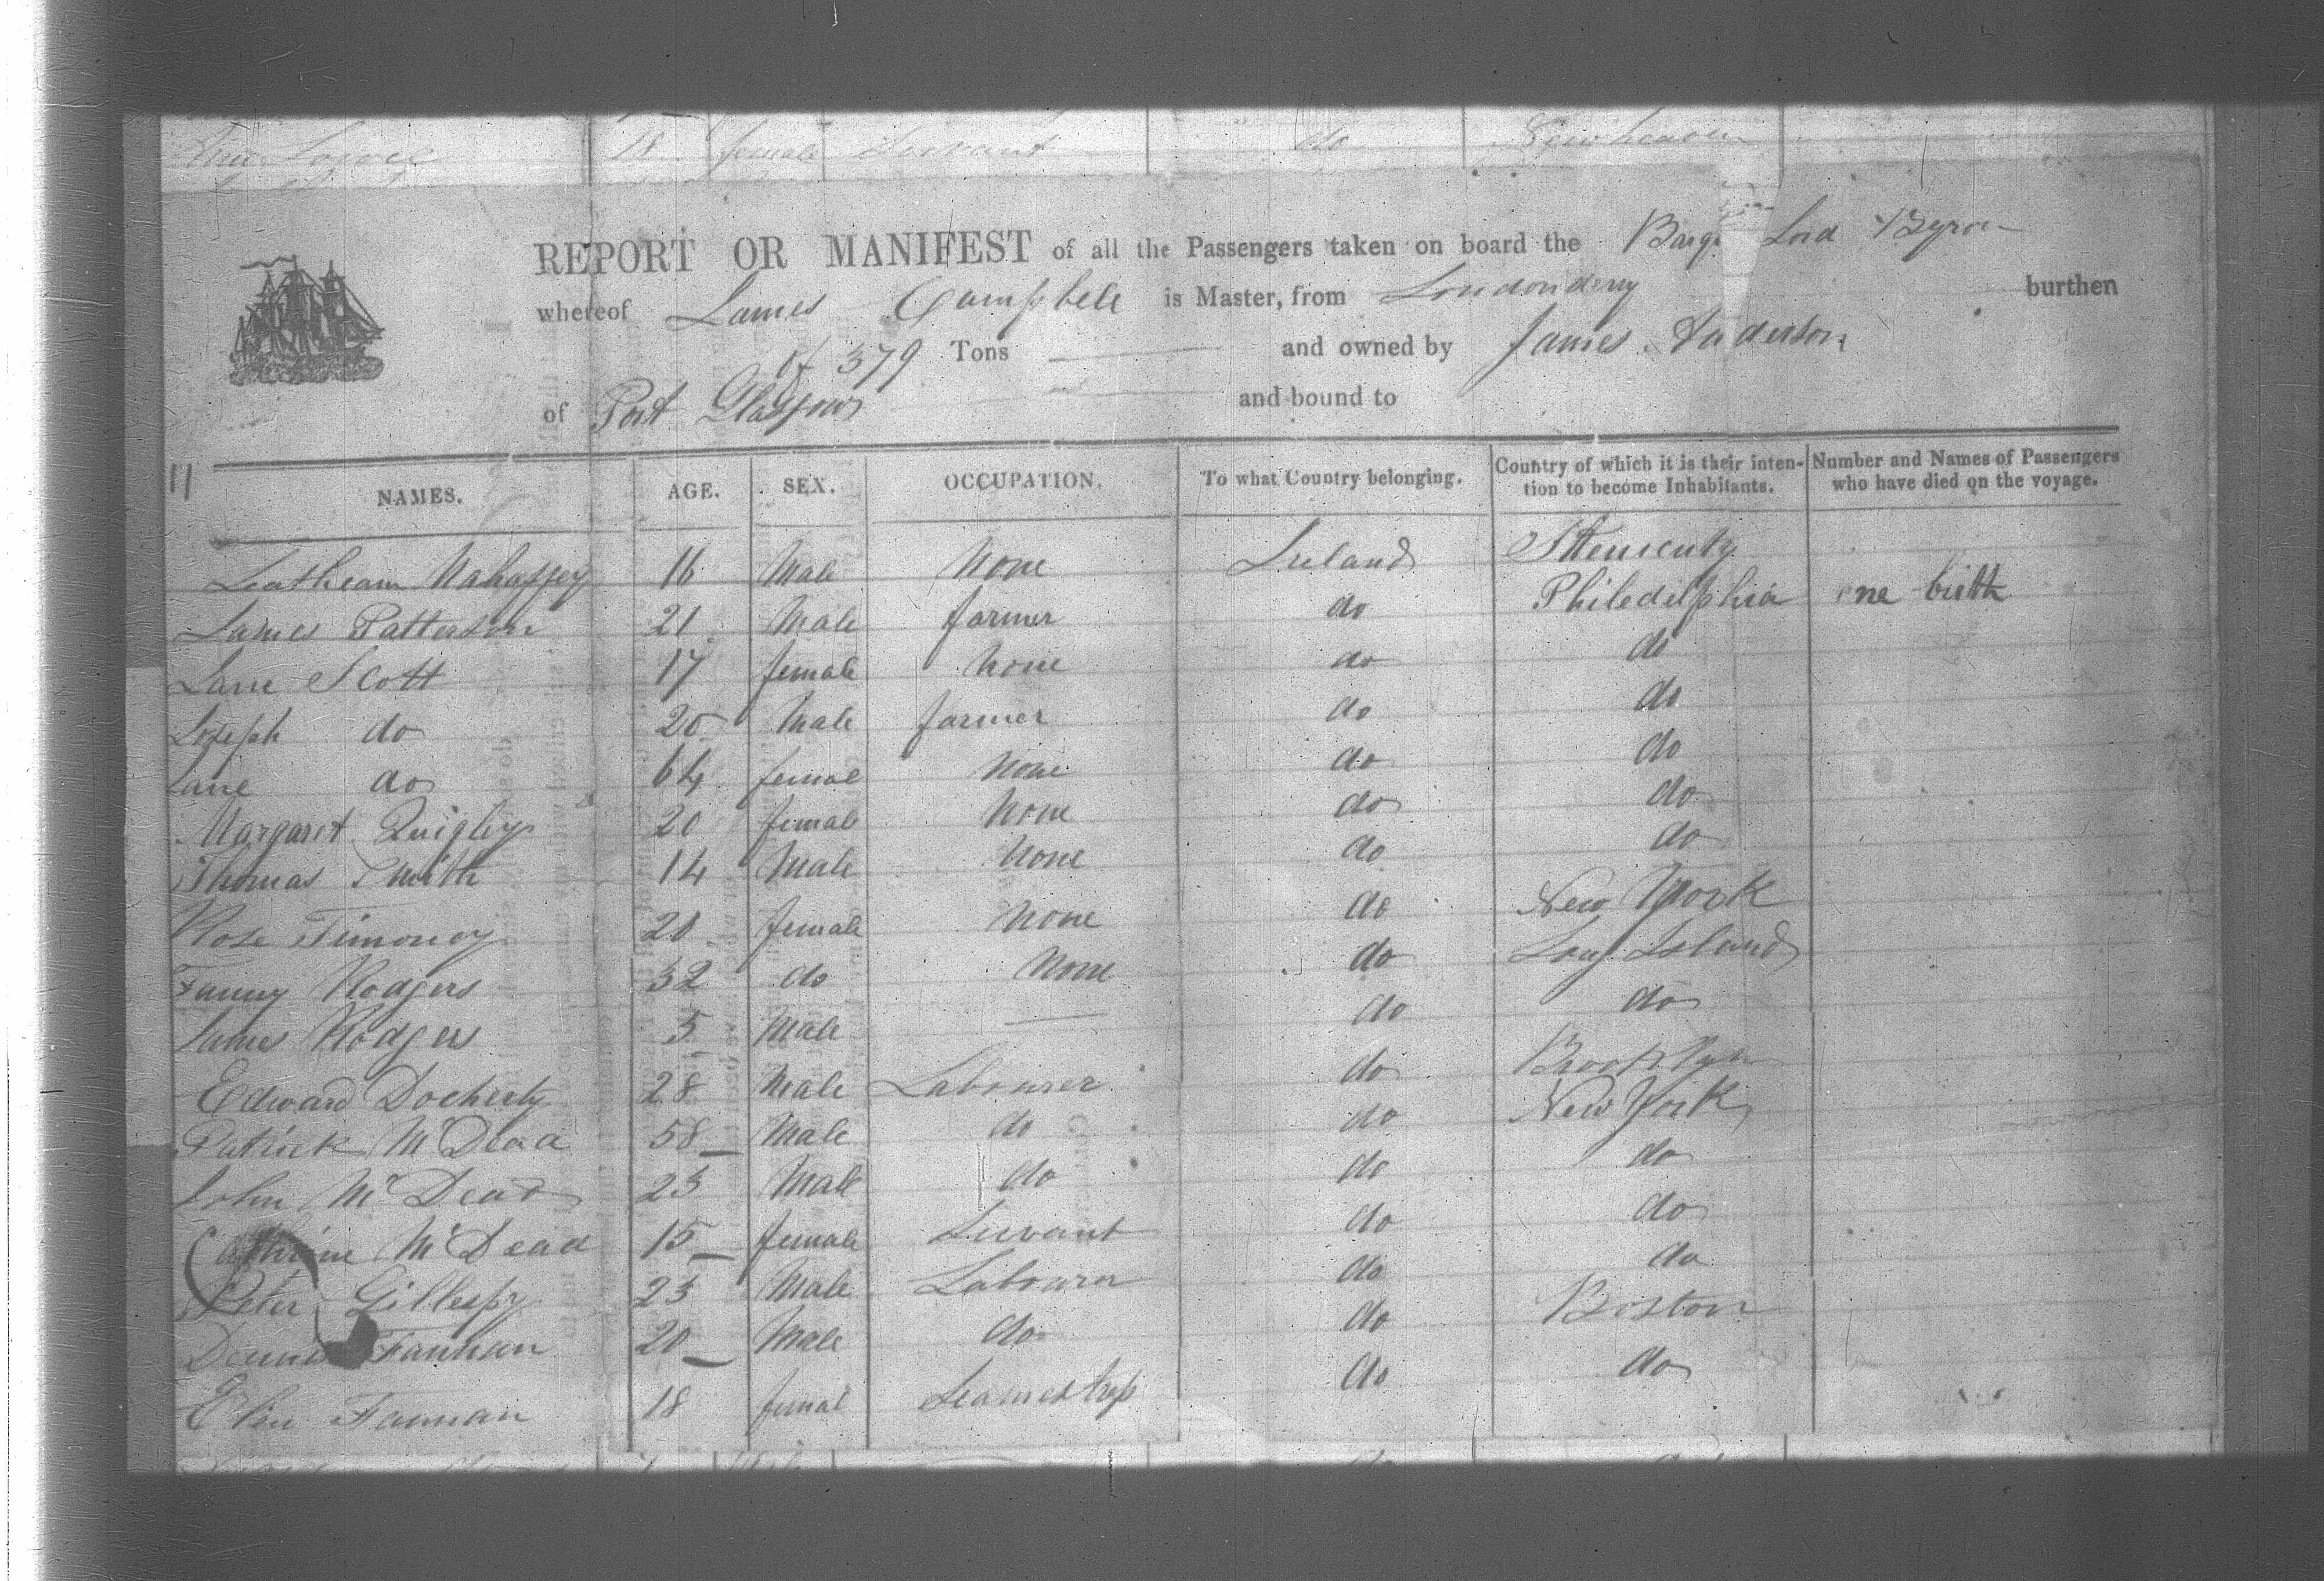 18 female Servant do
REPORT OR MANIFEST of all the Passengers taken on board the Barqe Lord Byron
whereof James Campbell is Master, from Londonderry burthen
of 379 Tons and owned by James Anderson
of Port Glasgow and bound to
11 NAMES. AGE. SEX. OCCUPATION. To what Country belonging. Country of which it is their inten- Number and Names of Passengers
tion to become Inhabitants. who have died on the voyage.
Leatheam Mahaffey 16 Male None Ireland
James Patterson 21 Male farmer do Philedelphia one birth
Jane Scott 17 female None do do
Joseph do 20 Male farmer do do
Jane do 64 female None do do
Margaret Quigley 20 female None do do
Thomas Smith 14 Male None do do
Rose Timoney 20 female None do New York
Fanny Rodgers 32 do None do Long Island
James Rodgers 5 Male — do do
Edward Docherty 28 Male Labourer do Brooklyn
Patrick McDead 58 Male do do New York
John McDead 25 Male do do do
Cathrine McDead 15 female Servant do do
Peter Gillespy 25 Male Labourer do do
Dennis Fannan 20 Male do do Boston
Elin Fannan 18 femal Seamestress do do